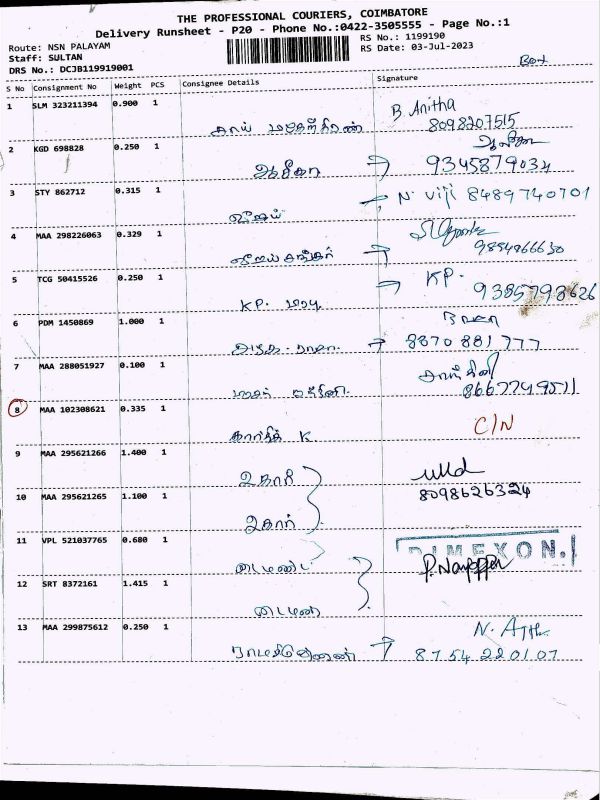 THE PROFESSIONAL COURIERS, COIMBATORE
Delivery Runsheet - P20 - Phone No.:0422-3505555 - Page No.:1
Route: NSN PALAYAM
RS No.: 1199190
Staff: SULTAN
RS Date: 03-Jul-2023
DRS No.: DCJB119919001
S No Consignment No Weight PCS Consignee Details Signature
1 SLM 323211394 0.900 1
B. Anitha
8098207515
2 KGD 698828 0.250 1
ஆசீகா → 9345879034
3 STY 862712 0.315 1
→ N. Viji 8489740701
விஜய்
4 MAA 298226063 0.329 1
விஜய் சங்கர் → 9894966630
5 TCG 50415526 0.250 1
→ KP.
KP. மாபு 9385798626
6 PDM 1450869 1.000 1
→ 8870 881 777
7 MAA 288051927 0.100 1
8667749511
8 MAA 102308621 0.335 1
கார்த்திக் K
C/N
9 MAA 295621266 1.400 1
உதார்
10 MAA 295621265 1.100 1
8098626324
உதார்
11 VPL 521037765 0.680 1
DIMEXON.
12 SRT 8372161 1.415 1
டைமண்
13 MAA 299875612 0.250 1
→ 8754 220107